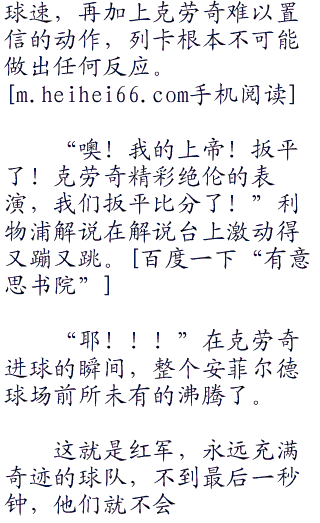 球速，再加上克劳奇难以置
信的动作，列卡根本不可能
做出任何反应。
[m.heihei66.com手机阅读]
“噢！我的上帝！扳平
了！克劳奇精彩绝伦的表
演，我们扳平比分了！”利
物浦解说在解说台上激动得
又蹦又跳。[百度一下“有意
思书院”]
“耶！！！”在克劳奇
进球的瞬间，整个安菲尔德
球场前所未有的沸腾了。
这就是红军，永远充满
奇迹的球队，不到最后一秒
钟，他们就不会